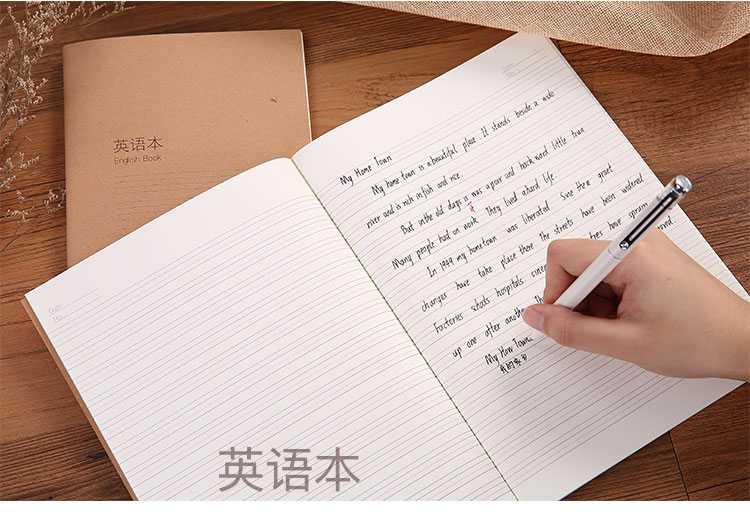 英语本
English Book
Date:
No.:
Date:
No.:
My Home Town
My home town is a beautiful place. It stands beside a wide
river and is rich in fish and rice.
But in the old days is was a poor and back ward little town
it
Many people had on work. They lived a hard life.
In 1949 my hometown was liberated. Sine then great
changes have take place there The streets have been widened.
Factories schools hospitals cinem trees have sprung
up one after another. Th round.
My How Town.
我的家乡
英语本